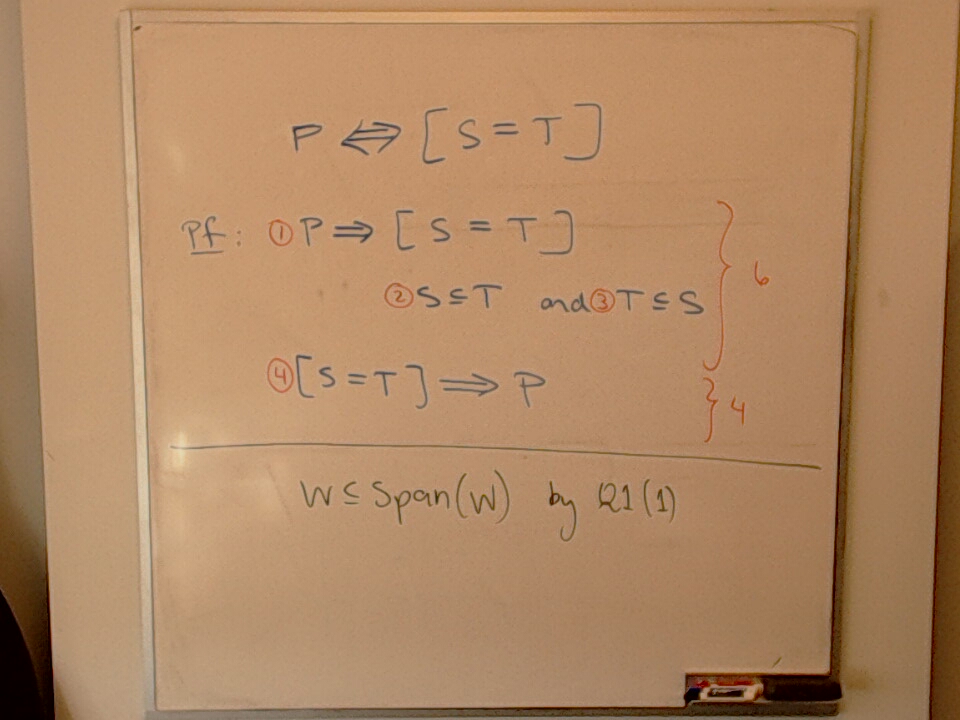 P ⇔ [S = T]
Pf: ① P ⇒ [S = T]
② S ⊆ T and ③ T ⊆ S
6
④ [S = T] ⟹ P
4
W ⊆ Span(W) by Q1(1)